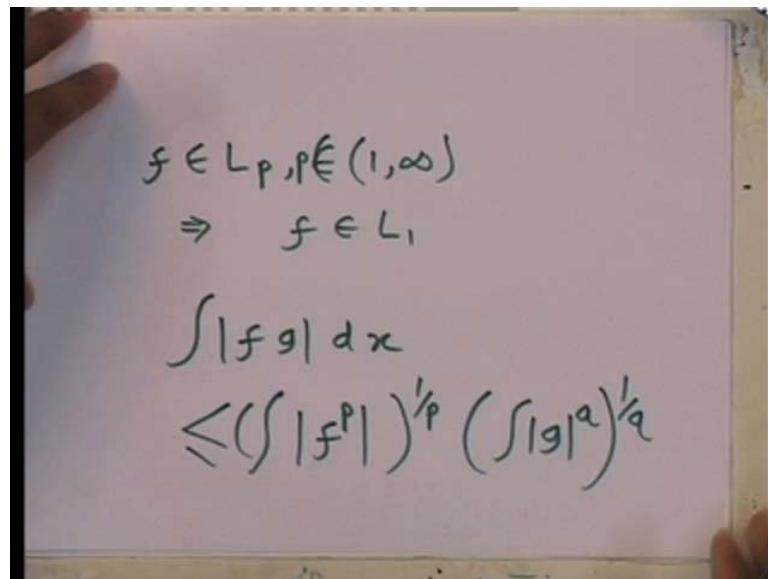 f ∈ L_p, p ∈ (1, ∞)
⇒ f ∈ L_1
∫|f g| dx
≤ (∫ |f^p| )^{1/p} (∫|g|^q)^{1/q}